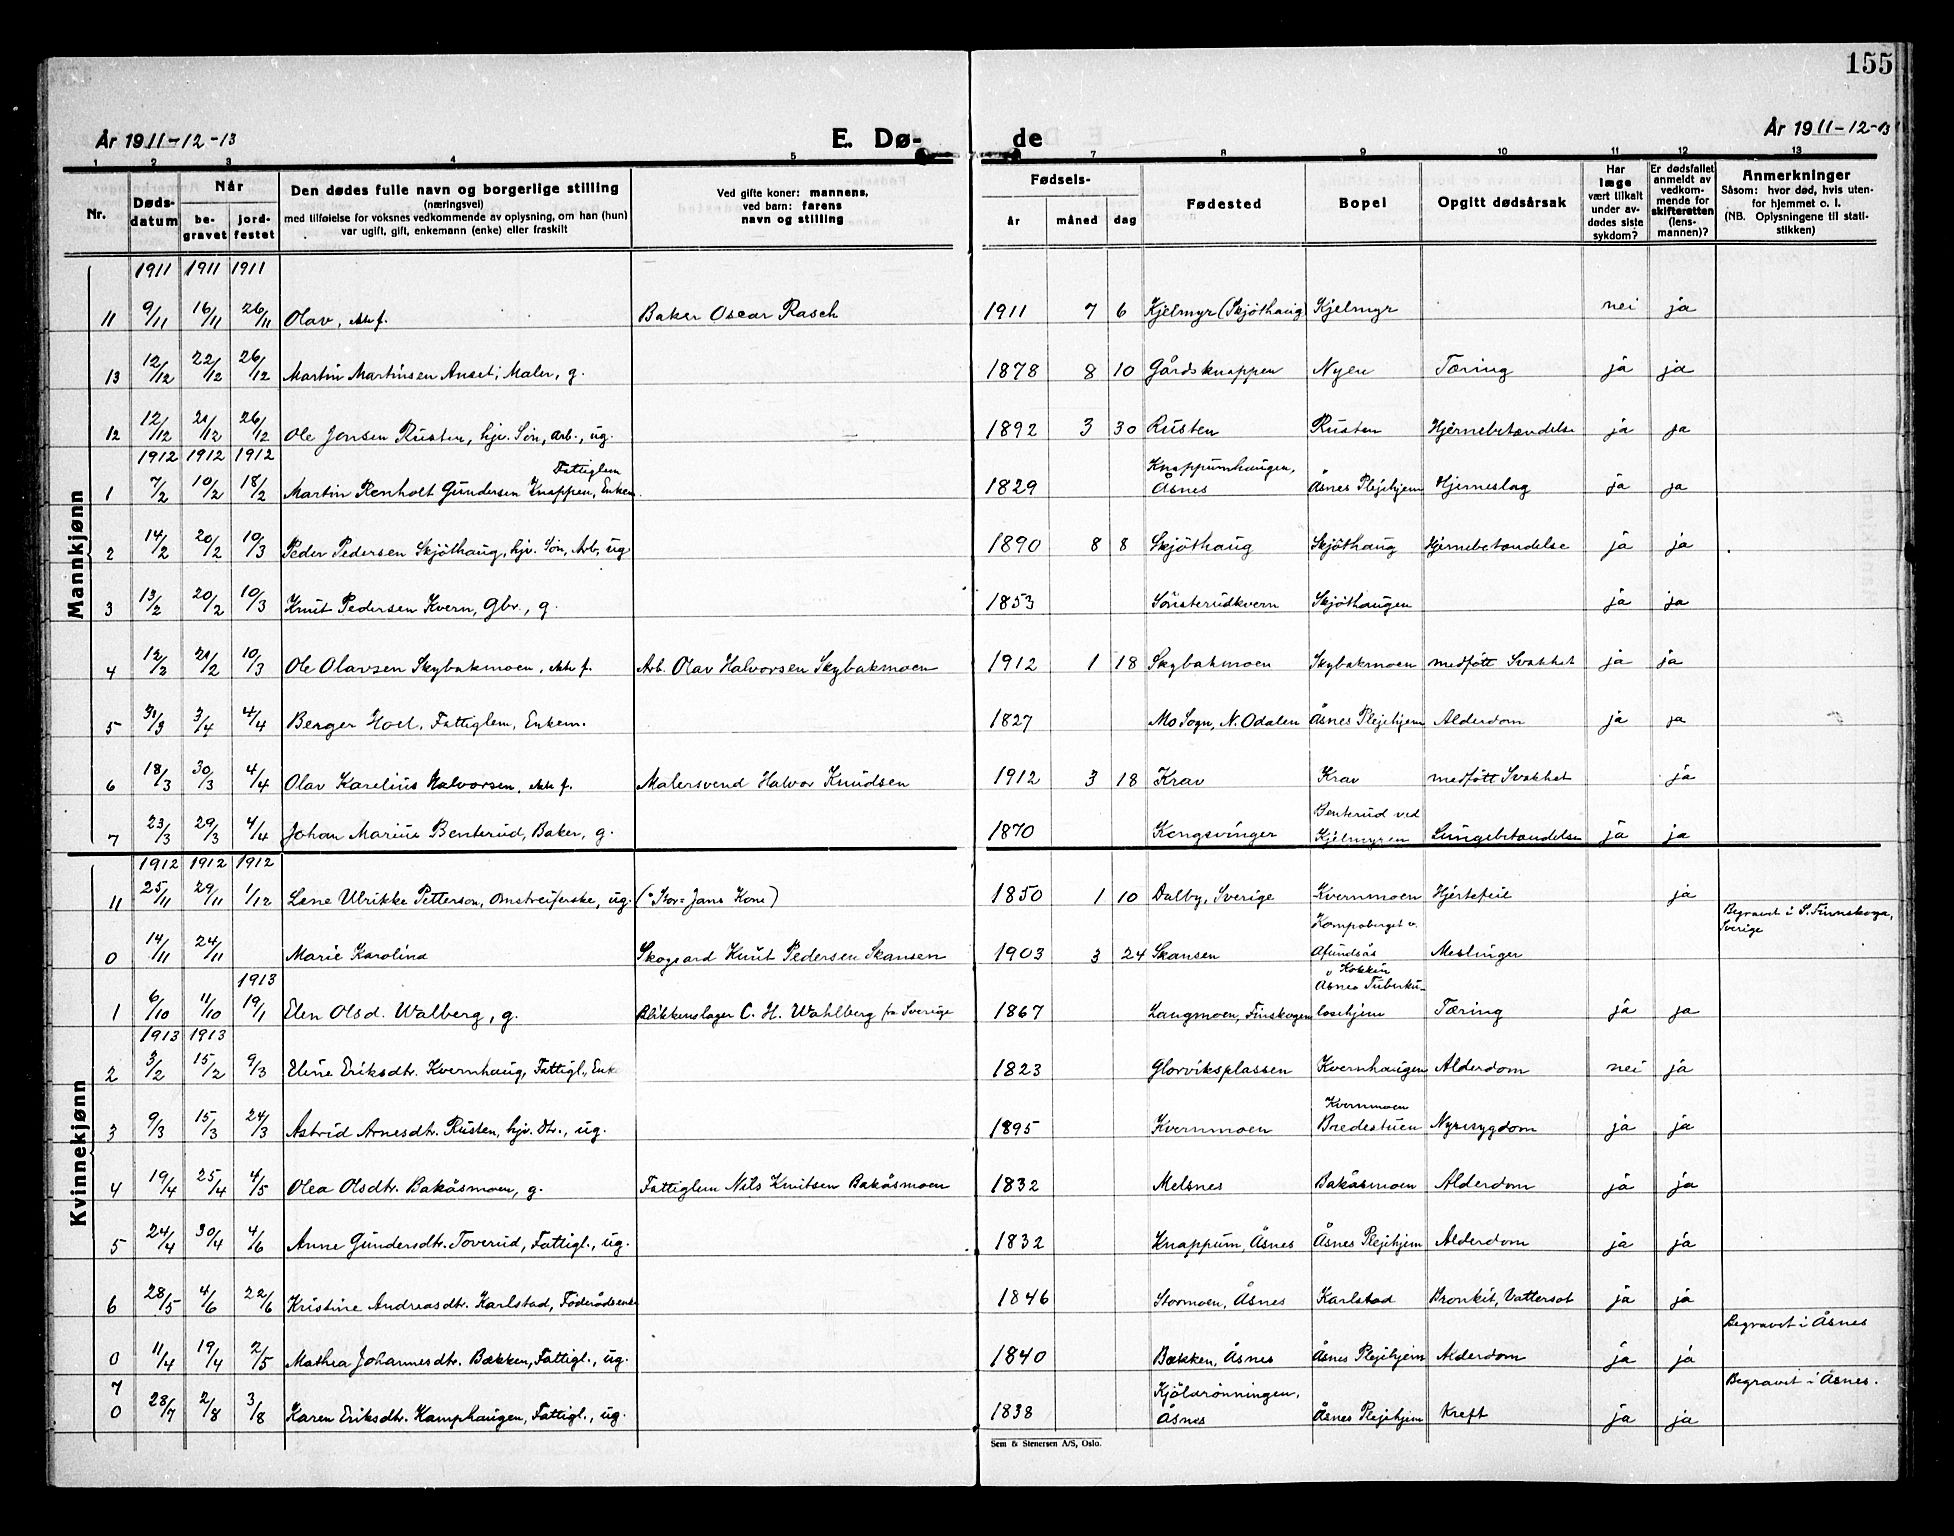 155
År 1911-12-13 E. Dø- de År 1911-12-13
1 2 3 4 5 7 8 9 10 11 12 13
Nr. Døds-datum Når be-gravet jord-festet Den dødes fulle navn og borgerlige stilling (næringsvei) med tilføielse for voksnes vedkommende av oplysning, om han (hun) var ugift, gift, enkemann (enke) eller fraskilt Ved gifte koner: mannens, ved barn: farens navn og stilling Fødsels- år måned dag Fødested Bopel Opgitt dødsårsak Har læge vært tilkalt under av-dødes siste sykdom? Er dødsfallet anmeldt av vedkom-mende for skifteretten (lens-mannen)? Anmerkninger Såsom: hvor død, hvis uten-for hjemmet o. l. (NB. Oplysningene til stati-stikken)
Mannkjønn
1911 1911 1911
11 9/11 16/11 26/11 Olav, f. Baker Oscar Rasch 1911 7 6 Kjelmyr (Skjöthaug) Kjelmyr nei ja
13 12/12 22/12 26/12 Martin Martinsen Anset, Maler, g. 1878 8 10 Gårdsknappen Nylu Tæring ja ja
12 12/12 21/12 26/12 Ole Jensen Rusten, hjv. Søn, Arb., ug. 1892 3 30 Rusten Rusten Hjernebetændelse ja ja
1912 1912 1912
1 7/2 10/2 18/2 Martin Renholt Gundersen Knappen, Fattiglem Enkem. 1829 Knappumhaugen, Åsnes Åsnes Plejehjem Hjerneslag ja ja
2 14/2 20/2 10/3 Peder Pedersen Skjöthaug, hjv. Søn, Arb, ug 1890 8 8 Skjöthaug Skjöthaug Hjernebetændelse ja ja
3 13/2 20/2 10/3 Knut Pedersen Kvern, Gbr., g. 1853 Sönsterudkvern Skjöthaugen ja ja
4 12/2 21/2 10/3 Ole Olavsen Skybakmoen, f. Arb. Olav Halvorsen Skybakmoen 1912 1 18 Skybakmoen Skybakmoen medføtt Svakhet ja ja
5 31/3 3/4 4/4 Berger Hoel, Fattiglem, Enkem. 1827 Mo Sogn, N. Odalen Åsnes Plejehjem Alderdom ja ja
6 18/3 30/3 4/4 Olav Karelius Halvorsen, f. Malersvend Halvor Knudsen 1912 3 18 Krav Krav medføtt Svakhet ja
7 23/3 29/3 4/4 Johan Marius Benterud, Baker, g. 1870 Kongsvinger Benterud ved Kjelmyren Lungebetændelse ja ja
Kvinnekjønn
1912 1912 1912
11 25/11 29/11 1/12 Lene Ulrikke Petterson, Omstreiferske, ug. ("Stor-Jans Kone) 1850 1 10 Dalby, Sverige Kvernmoen Hjertefeil ja
0 14/11 24/11 Marie Karolina Skogsard Knut Pedersen Skansen 1903 3 24 Skansen Kampoberget v. Afundsås Meslinger Begravet i S. Finnskoga, Sverige
1913
1 6/10 11/10 19/1 Elen Olsd. Walberg, g. Blikkenslager C. H. Wahlberg fra Sverige 1867 Langmoen, Finskogen Åsnes Tuberkulosehjem Tæring ja ja
1913 1913
2 3/2 15/2 9/3 Eline Eriksdtr. Kvernhaug, Fattigl., Enke 1823 Glorviksplassen Kvernhaugen Alderdom nei ja
3 9/3 15/3 24/3 Astrid Arnesdtr. Rusten, hjv. Dtr., ug. 1895 Kvernmoen Kvernmoen Bredestuen Nyresygdom ja ja
4 19/4 25/4 4/5 Olea Olsdtr. Bakåsmoen, g. Fattiglem Nils Knutsen Bakåsmoen 1832 Melsnes Bakåsmoen Alderdom ja ja
5 24/4 30/4 4/6 Anne Gundersdtr. Toverud, Fattigl., ug. 1832 Knappum, Åsnes Åsnes Plejehjem Alderdom ja ja
6 28/5 4/6 22/6 Kristine Andreasdtr. Karlstad, Föderådsenke 1846 Stormoen, Åsnes Karlstad Bronkit, Vattersot ja ja
0 11/4 19/4 2/5 Mathea Johannesdtr. Bækken, Fattigl., ug. 1840 Bækken, Åsnes Åsnes Plejehjem Alderdom ja ja Begravet i Åsnes
7
0 28/7 2/8 3/8 Karen Eriksdtr. Kamphaugen, Fattigl., ug. 1838 Kjölarönningen, Åsnes Åsnes Plejehjem Kreft ja ja Begravet i Åsnes.
Sem & Stenersen A/S, Oslo.